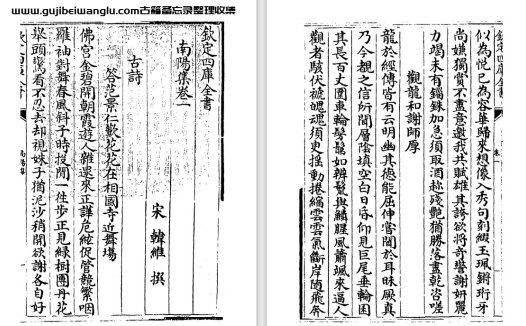 www.gujibeiwanglu.com古籍备忘录整理收集
欽定四庫全書
南陽集卷一
宋 韓維 撰
古詩
答范景仁歎花花在相國寺近舞場
佛宮金碧開朝霞遊人雜遝來正譁危絃促管競繁咽
羅袖對舞春風斜子時投閒一往步正見綠樹團丹花
舉頭驚看不忍去却視妹子猶泥沙稍開欲謝各自好
欽定四庫全書
卷一
似為悅已為容華歸來想像入秀句刻綴玉珮鏘珩牙
尚嫌獨賞不盡意邀我共賦雄其誇欲將奇譽謝妍麗
力竭未有錙銖加急須取酒趂殘艷猶勝落盡乾咨嗟
觀龍和謝師厚
龍於經傳皆有云明幽其德能屈伸嘗聞於耳昧厥真
乃今覩之信所聞層陰填空白日昏仰見巨尾垂輪囷
其長百丈圍車輪髣髴如辨鬛與鱗腥風蕭颯來逼人
觀者駭伏褫魄魂須臾搖動捲縮雲雲氣斷岸隨飛奔